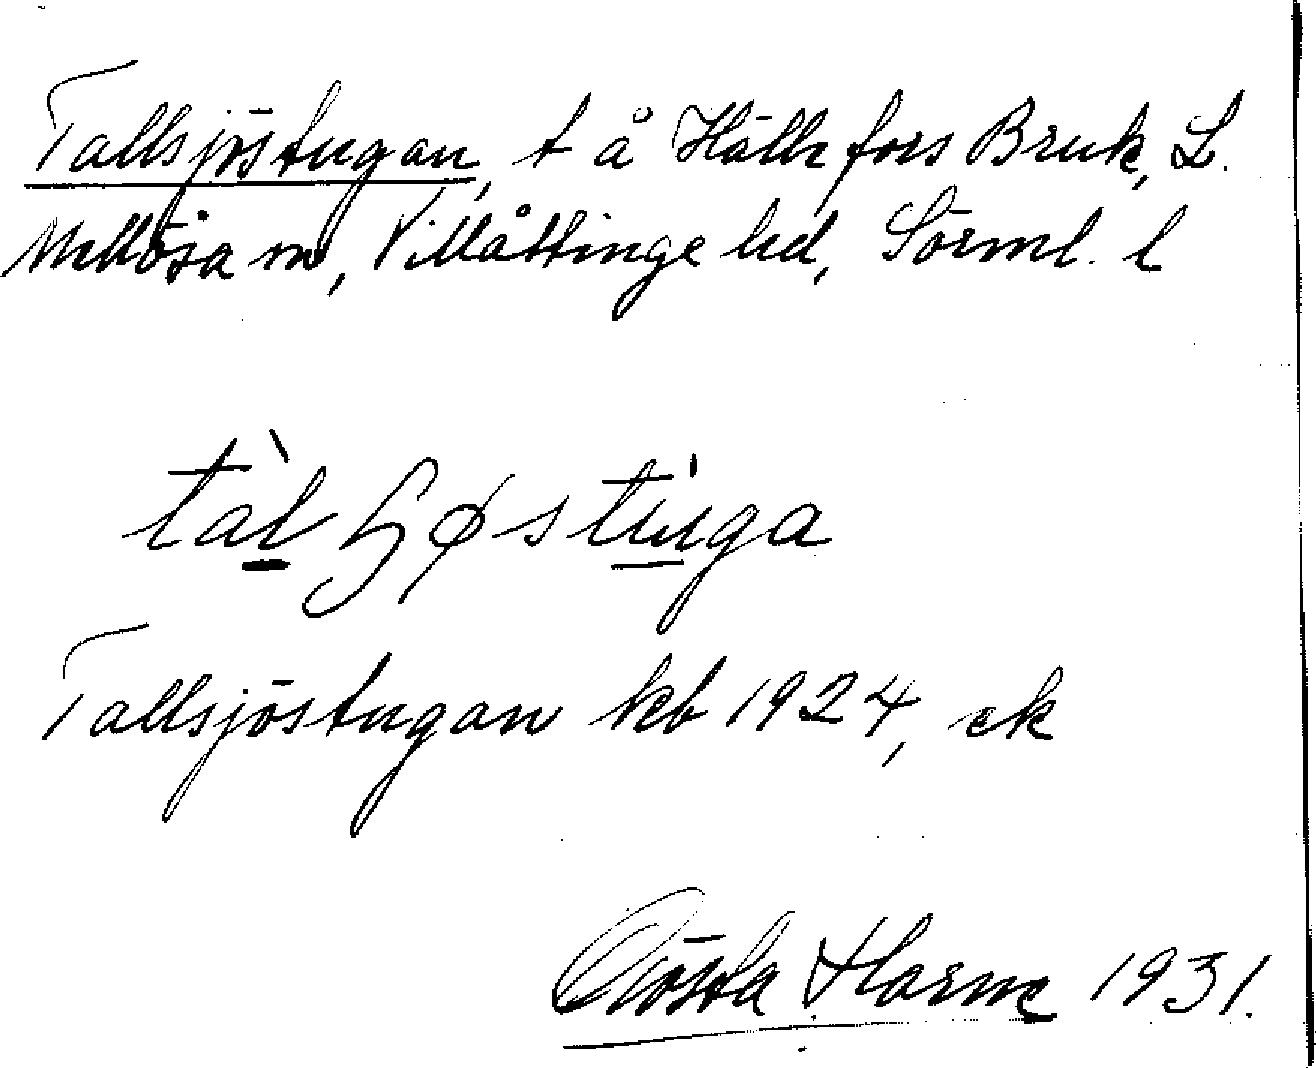 Tallsjöstugan, t å Hällefors Bruk, L.
Mellösa sn, Villåttinge hd, Sörml. l
tàlɧøstu̇ga
Tallsjöstugan kb 1924, ek
Gösta Harne 1931.